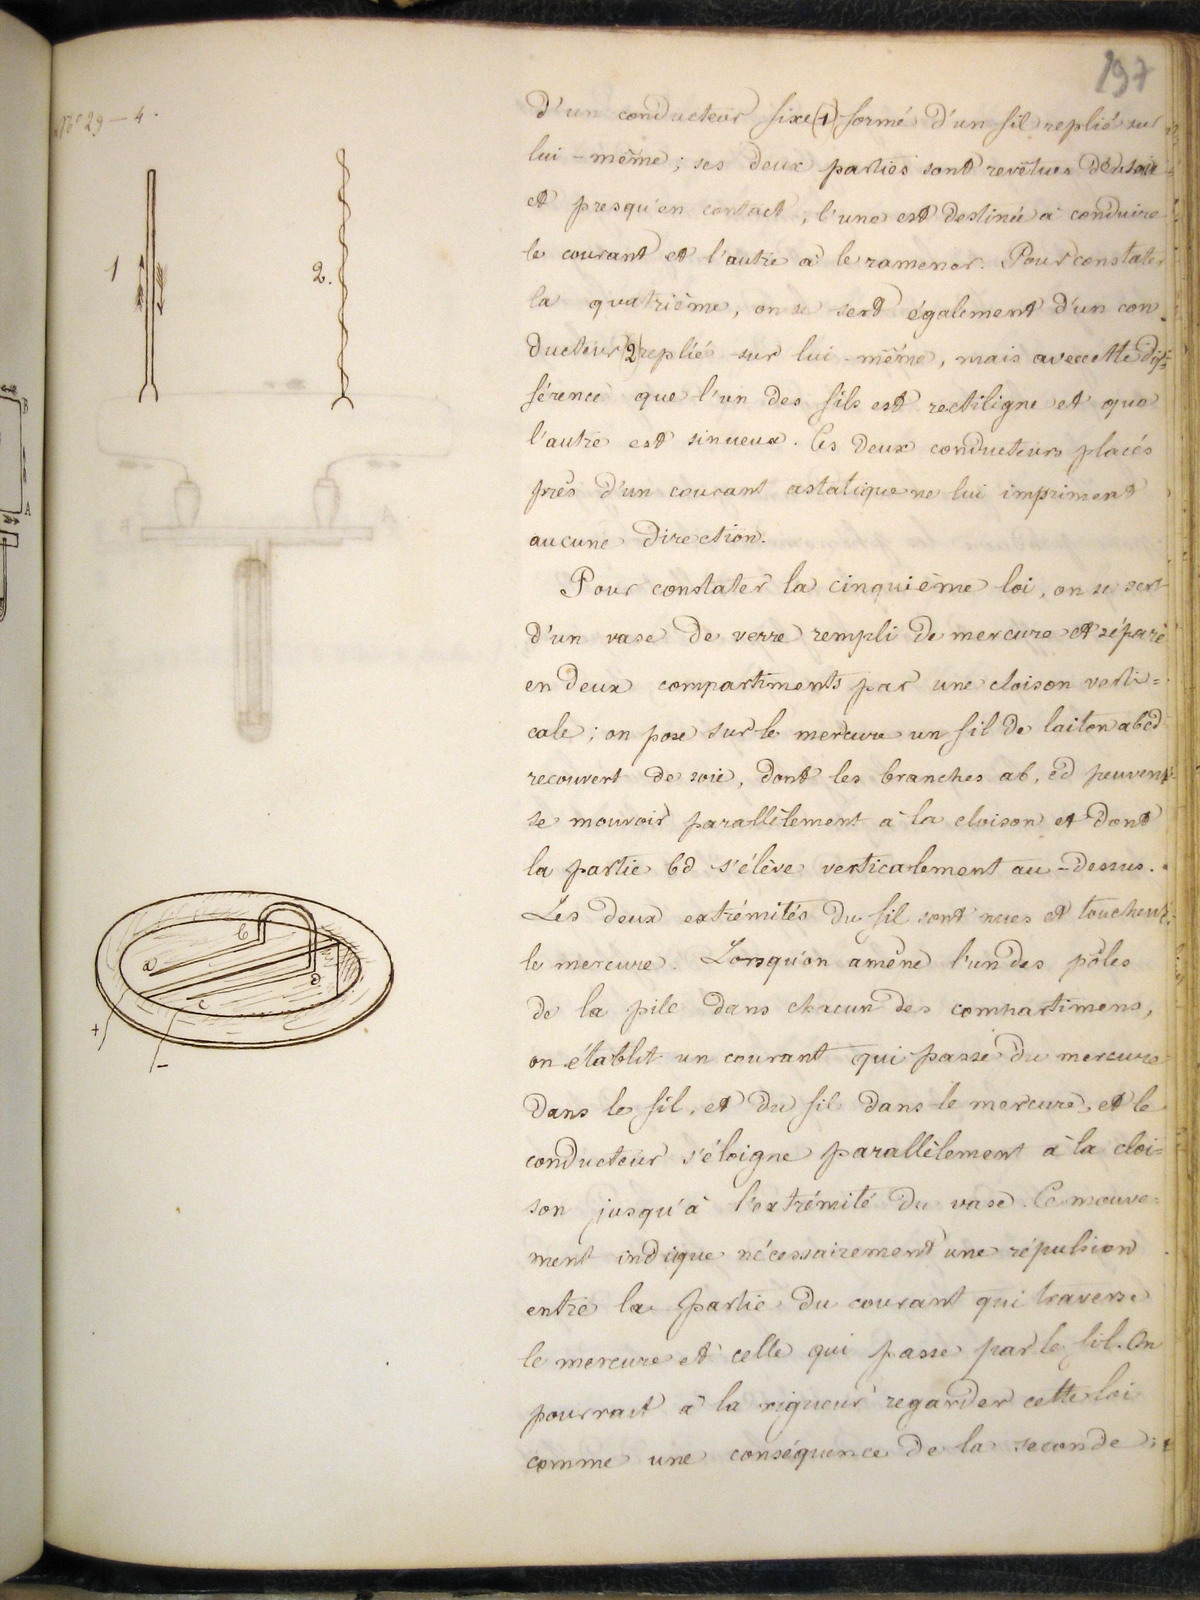 197
N° 29 — 4.
d'un conducteur fixe (1) formé d'un fil replié sur
lui-même ; ses deux parties sont revêtues de soie
et presqu'en contact, l'une est destinée à conduire
le courant et l'autre à le ramener. Pour constater
la quatrième, on se sert également d'un con
ducteur (2) replié sur lui-même, mais avec cette dif=
férence que l'un des fils est rectiligne et que
l'autre est sinueux. Ces deux conducteurs placés
près d'un courant astatique ne lui impriment
aucune direction.
Pour constater la cinquième loi, on se sert
d'un vase de verre rempli de mercure et séparé
en deux compartiments par une cloison verti=
cale ; on pose sur le mercure un fil de laiton abcd
recouvert de soie, dont les branches ab, cd peuvent
se mouvoir parallèlement à la cloison et dont
la partie bd s'élève verticalement au-dessus.
Les deux extrémités du fil sont nues et touchent
le mercure. Lorsqu'on amène l'un des pôles
de la pile dans chacun des compartimens,
on établit un courant qui passe du mercure
dans le fil, et du fil dans le mercure, et le
conducteur s'éloigne parallèlement à la cloi=
son jusqu'à l'extrémité du vase. Ce mouve=
ment indique nécessairement une répulsion
entre la partie du courant qui traverse
le mercure et celle qui passe par le fil. On
pourrait à la rigueur regarder cette loi
comme une conséquence de la seconde ;
1
2.
B
A
A
a
b
c
d
+
-